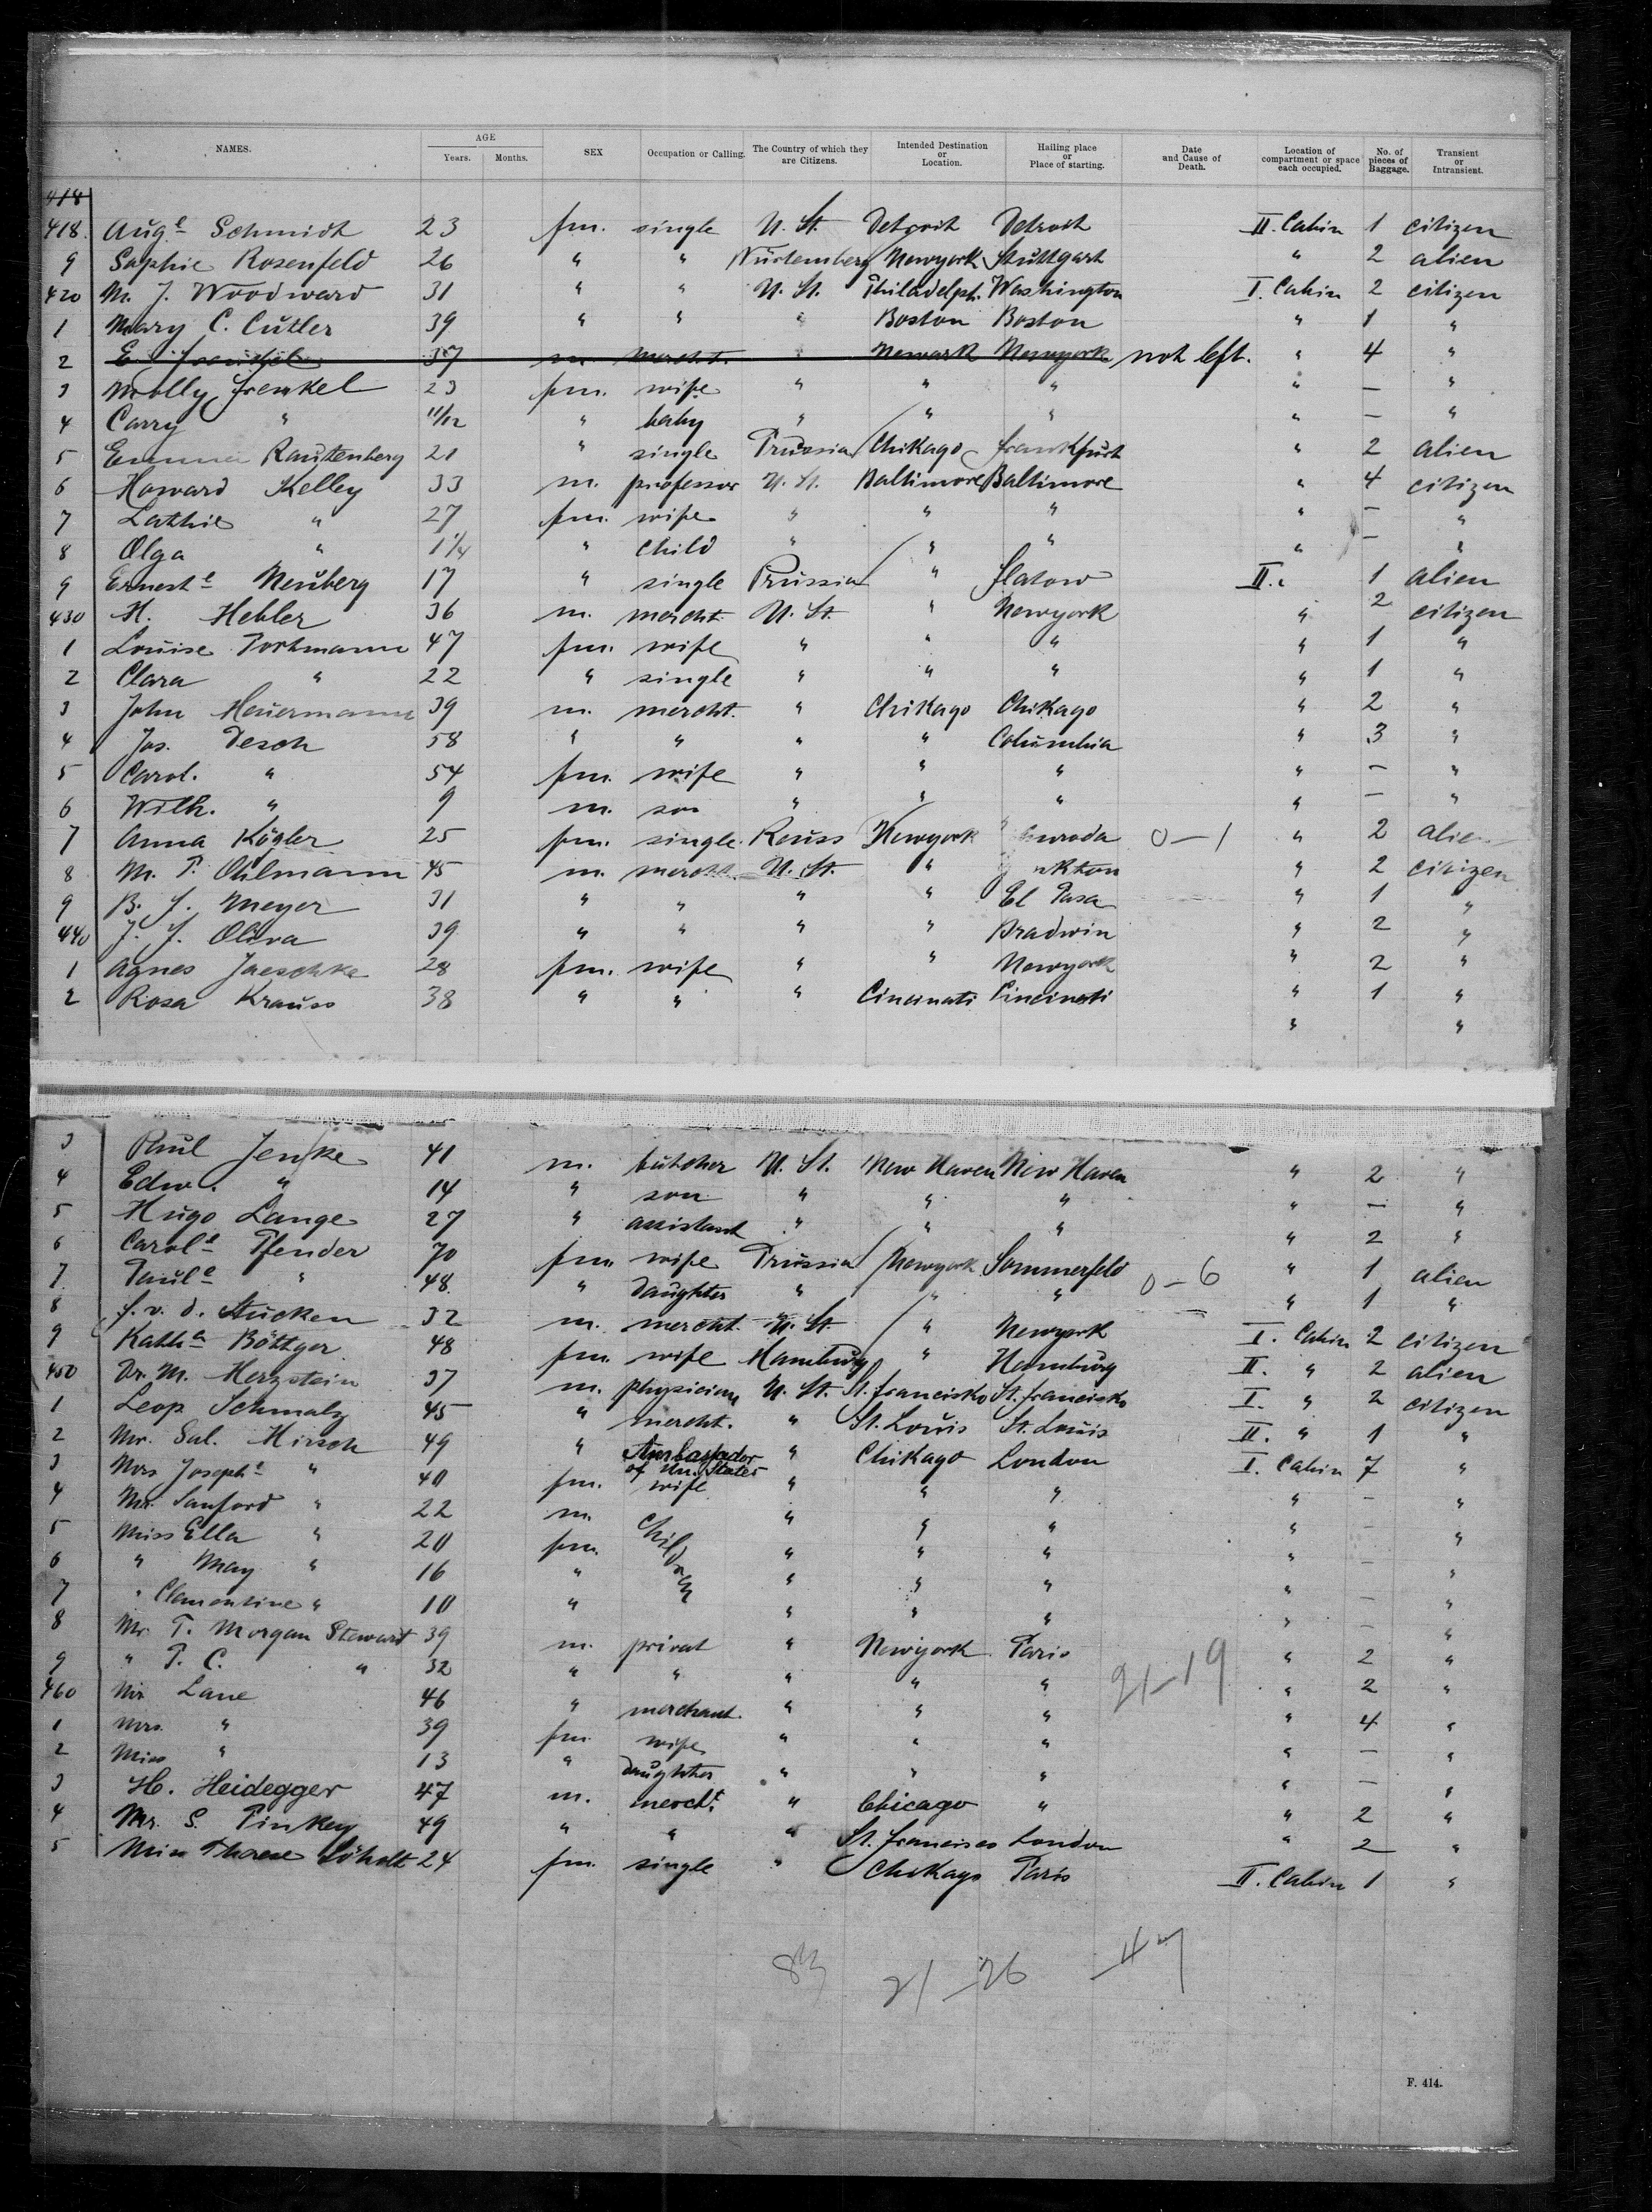 NAMES. AGE Years. Months. SEX Occupation or Calling. The Country of which they are Citizens. Intended Destination or Location. Hailing place or Place of starting. Date and Cause of Death. Location of compartment or space each occupied. No. of pieces of Baggage. Transient or Intransient.
418
418. Auge Schmidt 23 fm. single U. St. Detroit Detroit II. Cabin 1 citizen
9 Sophie Rosenfeld 26 " " Würtemberg Newyork Stuttgart " 2 alien
420 M. J. Woodward 31 " " U. St. Philadelph. Washington I. Cabin 2 citizen
1 Mary C. Cutler 39 " " " Boston Boston " 1 "
2 E. 37 m. mercht. " Newark Newyork not left. " 4 "
3 Molly Frenkel 23 fm. wife " " " " — "
4 Carry " 11/12 " baby " " " " — "
5 Emma Rautenberg 21 " single Prussia Chikago Frankfurt " 2 alien
6 Howard Kelley 33 m. professor U. St. Baltimore Baltimore " 4 citizen
7 Lathie " 27 fm. wife " " " " — "
8 Olga " 1 1/4 " child " " " " — "
9 Erneste Neuberg 17 " single Prussia " Flatow II. " 1 alien
430 H. Hebler 36 m. mercht. U. St. " Newyork " 2 citizen
1 Louise Portmann 47 fm. wife " " " " 1 "
2 Clara " 22 " single " " " " 1 "
3 John Heuermann 39 m. mercht. " Chikago Chikago " 2 "
4 Jos. Desch 58 " " " " Columbia " 3 "
5 Carol. " 54 fm. wife " " " " — "
6 Wilh. " 9 m. son " " " " — "
7 Anna Kögler 25 fm. single. Reuss Newyork 0—1 " 2 alien
8 M. P. Ohlmann 45 m. mercht. U. St. " " 2 citizen
9 B. J. Meyer 31 " " " " El Paso " 1 "
440 J. J. Oliva 39 " " " " Bradwin " 2 "
1 Agnes Jaeschke 28 fm. wife " " Newyork " 2 "
2 Rosa Krauss 38 " " " Cincinati Cincinati " 1 "
" "
3 Paul Jenke 41 m. butcher U. St. New Haven New Haven " 2 "
4 Edw. " 14 " son " " " " — "
5 Hugo Lange 27 " assistant " " " " 2 "
6 Carole Pfender 70 fm. wife Prussia Newyork Sommerfeld " 1 alien
7 Paule " 48. " daughter " " " 0—6 " 1 "
8 f. v. d. Stucken 32 m. mercht. U. St. " Newyork I. Cabin 2 citizen
9 Katha Böttger 48 fm. wife Hamburg " Hamburg II. " 2 alien
450 Dr. M. Herzstein 37 m. physician U. St. St. Francisko St. Francisko I. " 2 citizen
1 Leop Schmalz 45 " mercht. " St. Louis St. Louis II. " 1 "
2 Mr. Sal. Hirsch 49 " Ambassador of Un. States " Chikago London I. Cabin 7 "
3 Mrs Josephe " 40 fm. wife " " " " — "
4 Mr. Sanford " 22 m. children " " " " — "
5 Miss Ella " 20 fm. " " " " — "
6 " May " 16 " " " " " — "
7 " Clementine " 10 " " " " " — "
8 Mr. T. Morgan Stewart 39 m. privat " Newyork Paris " 2 "
9 " P. C. " 32 " " " " " 21—19 " 2 "
460 Mr Lane 46 " merchant. " " " " 4 "
1 Mrs. " 39 fm. wife " " " " — "
2 Miss " 13 " daughter " " " " — "
3 H. Heidegger 47 m. mercht. " Chicago " " 2 "
4 Mr. S. Pinkey 49 " " " St. Francisco London " 2 "
5 Miss Therese 24 fm. single " Chikago Paris II. Cabin 1 "
83 21—26 —47
F. 414.